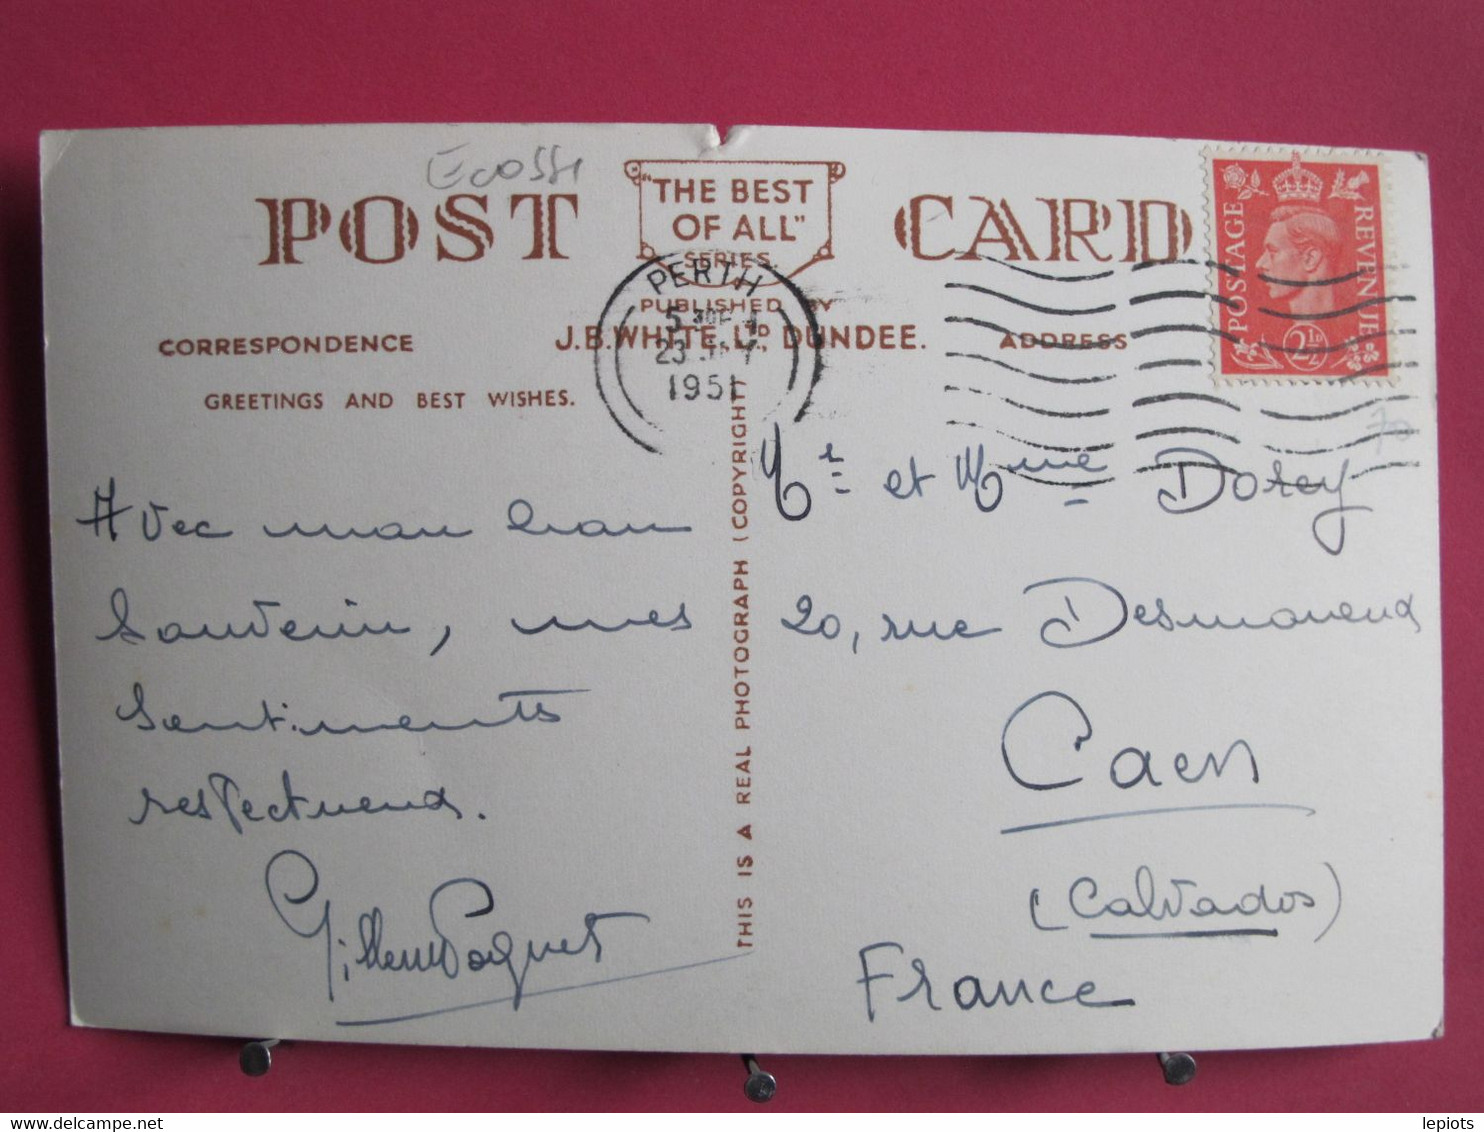 Ecosse
POST CARD
"THE BEST
OF ALL"
SERIES
PUBLISHED BY
J.B. WHITE LTD., DUNDEE.
CORRESPONDENCE
ADDRESS
GREETINGS AND BEST WISHES.
PERTH
23
1951
POSTAGE
REVENUE
2½D
70
Avec mon bon
Souvenir, mes
Sentiments
respectueux.
Mr et Mme Dorey
20, rue Desmoueux
Caen
(Calvados)
France
THIS IS A REAL PHOTOGRAPH (COPYRIGHT)
lepiots